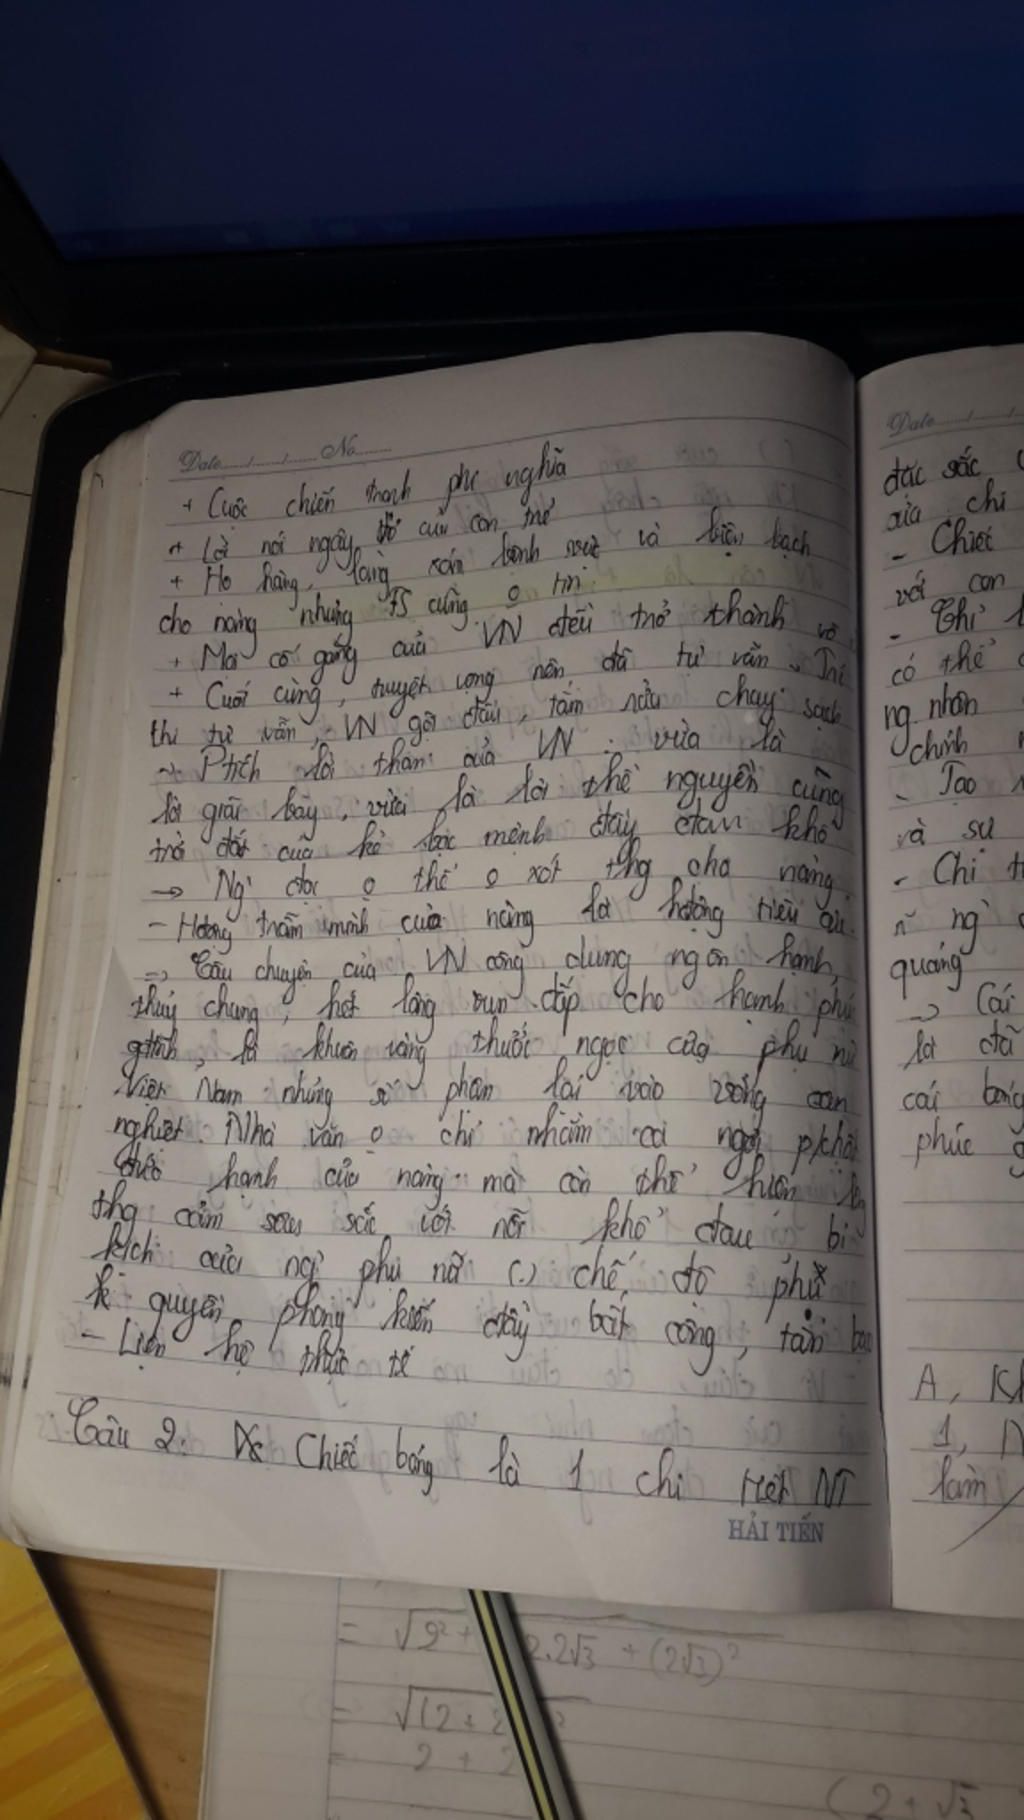 Date..../..../.... No........
+ Cuộc chiến tranh phi nghĩa
+ Lời nói ngây thơ của con trẻ
+ Họ hàng, làng xóm bênh vực và biện bạch
cho nàng nhưng TS cũng o tin
+ Mọi cố gắng của VN đều trở thành vô
+ Cuối cùng, tuyệt vọng nên đã tự vẫn. Trc
khi tự vẫn, VN gội đầu, tắm rửa chay sạch
→ Ptích lời than của VN: vừa là
lời giãi bày, vừa là lời thề nguyền cũng
của kẻ bạc mệnh đầy đau khổ
→ Ng` đọc o thể o xót thg cho nàng
- Hđộng trẫm mình của nàng là hđộng tiêu cực
=> Câu chuyện của VN công dung ngôn hạnh,
thủy chung, hết lòng vun đắp cho hạnh phúc
gđình, là khuôn vàng thước ngọc của phụ nữ
Việt Nam nhưng số phận lại vào vòng oan
nghiệt. Nhà văn o chỉ nhằm ca ngợi p/chất
đức hạnh của nàng mà còn thể hiện
thg cảm sâu sắc với nỗi khổ đau, bi
kịch của ng` phụ nữ (.) chế độ phụ
quyền phong kiến đầy bất công, tàn bạo
- Liên hệ thực tế
Câu 2: Chiếc bóng là 1 chi tiết NT
HẢI TIẾN
Date..../..../
đặc sắc
của chi
- Chiếc
với con
- Chi
có thể
ng. nhân
chính
- Tạo
và sự
- Chi
ng`
quáng
-> Cái
là đã
cái bóng
phúc
A,
1,
làm
= √2² + 2.2√3 + (2√3)²
= √(2 + 2
= 2 + 2
(2 + √3